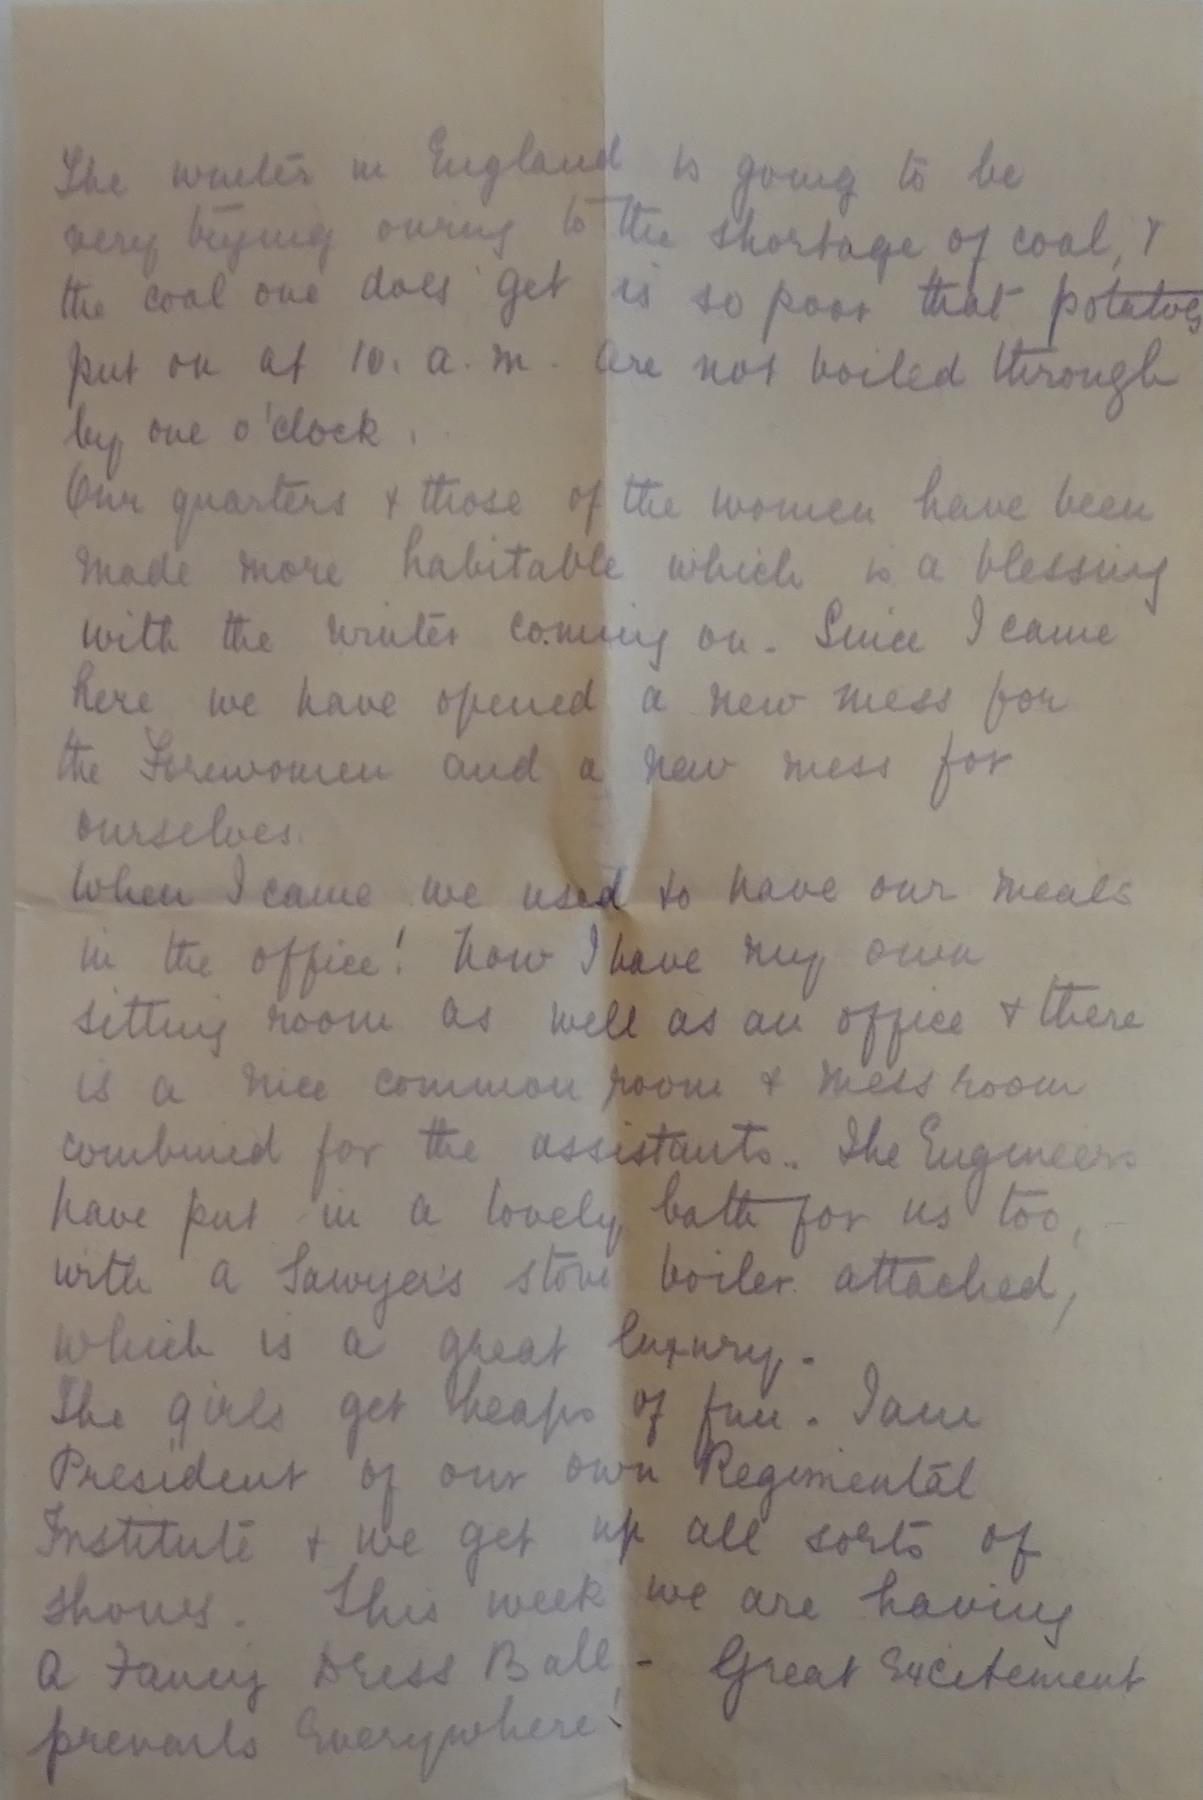 The winter in England is going to be
very trying owing to the shortage of coal, &
the coal one does get is so poor that potatoes
put on at 10. a.m. are not boiled through
by one o'clock.
Our quarters & those of the women have been
made more habitable which is a blessing
with the winter coming on. Since I came
here we have opened a new mess for
the Forewomen and a new mess for
ourselves.
When I came we used to have our meals
in the office! Now I have my own
sitting room as well as an office & there
is a nice common room & mess room
combined for the assistants. The Engineers
have put in a lovely bath for us too,
with a Sawyer's stove boiler attached,
which is a great luxury.
The girls get heaps of fun. I am
President of our own Regimental
Institute & we get up all sorts of
shows. This week we are having
a Fancy Dress Ball - Great Excitement
prevails Everywhere!